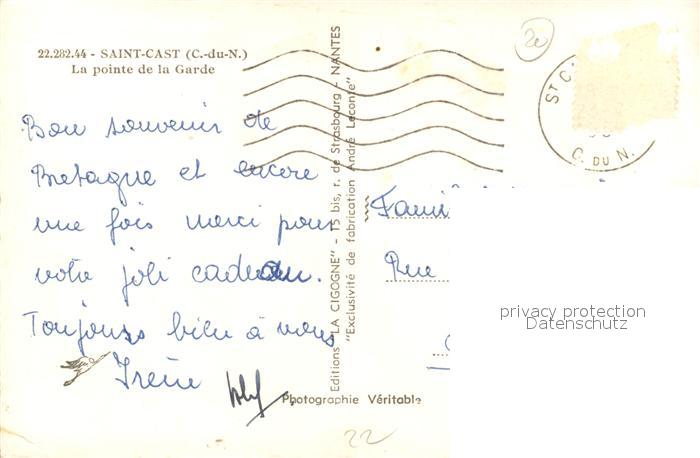 22.282.44 - SAINT-CAST (C.-du-N.)
La pointe de la Garde
Bon souvenir de
Bretagne et encore
une fois merci pour
votre joli cadeau.
Toujours bien à vous
Irène
Editions "LA CIGOGNE" - 15 bis, r. de Strasbourg - NANTES
"Exclusivité de fabrication André Leconte"
Photographie Véritable
2e
ST C
C. DU N.
Famil
Rue
privacy protection
Datenschutz
22